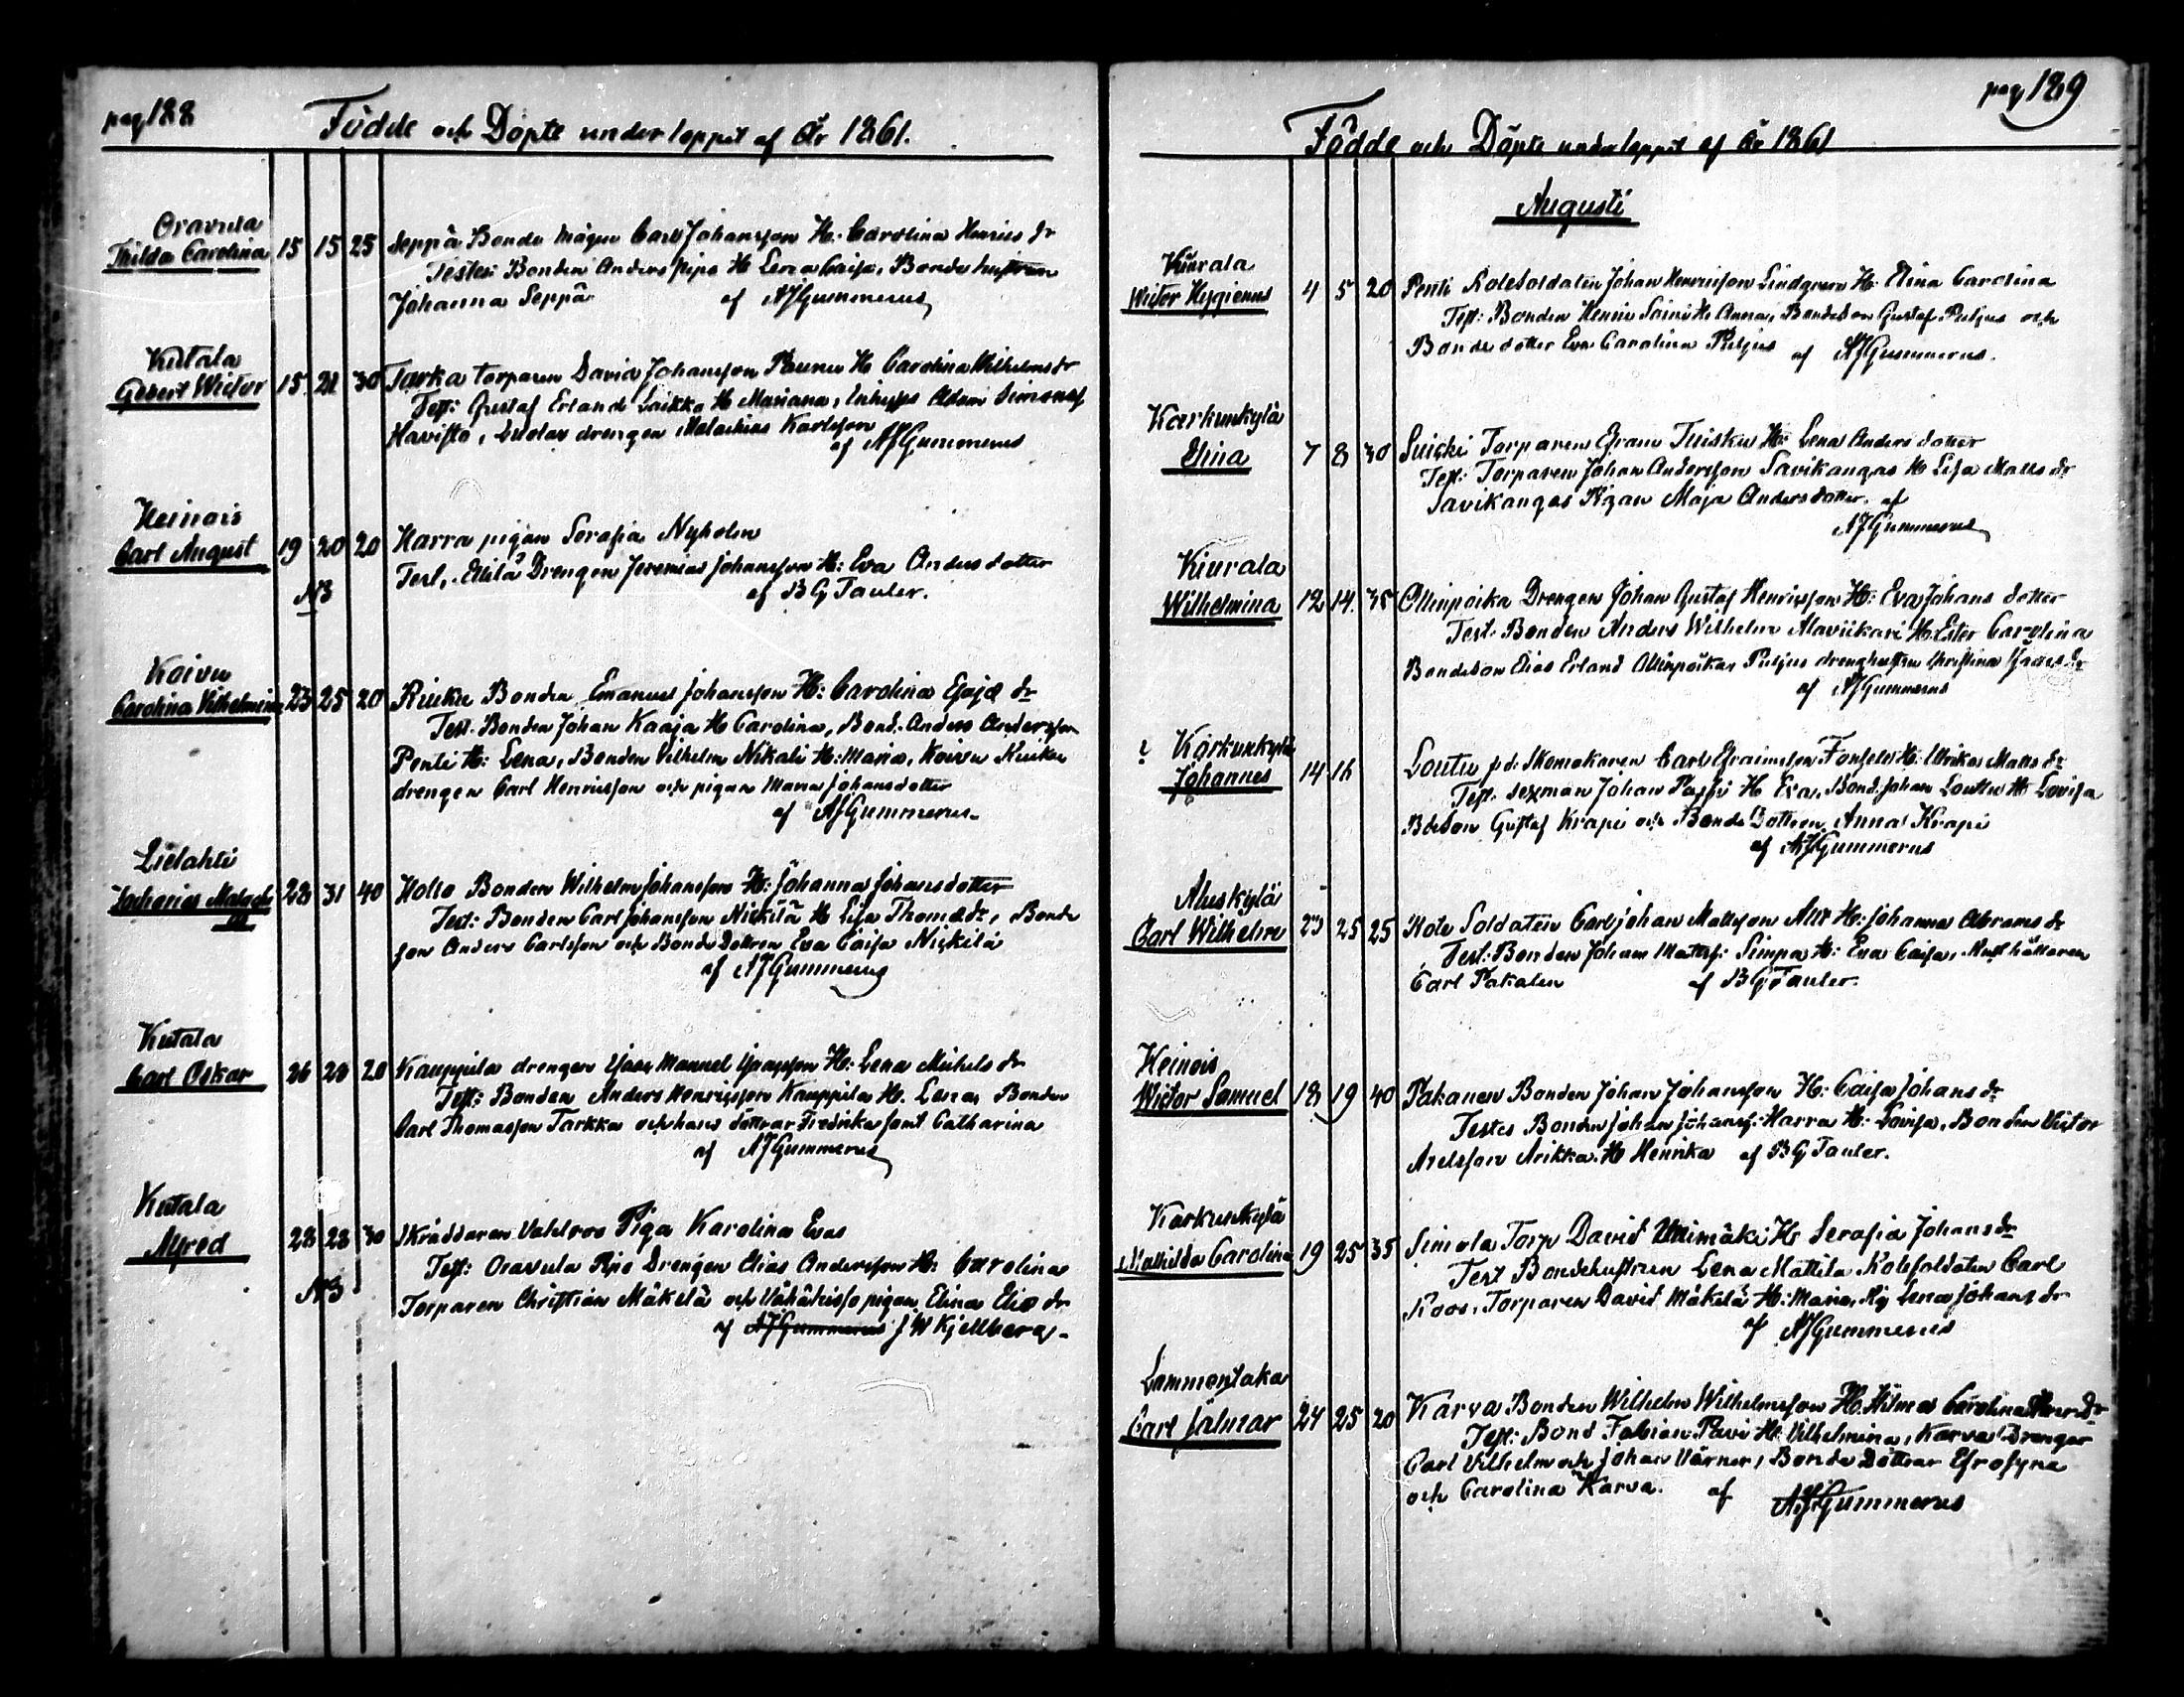 pag 188
Födde och Döpte under loppet af År 1861.
Oravula
Thilda Carolina 15 15 25 Seppä Bonde mågen Carl Johansson H: Carolina Henrics dr
Testes Bonden Anders Pipo H Lena Caisa, Bonde hustrun
Johanna Seppä af AJGummerus
Kutala
Gebert Wictor 15 21 30 Tarka torparen David Johansson H Carolina Wilhelms dr
Test: Gustaf Erland Laikko H Mariana, Inhyss Adam Simonss
Havisto, drengen Malachias Karlsson
af AJGummerus
Heinois
Carl August 19 20 20 Harra pigan Serafia Nyholm
Test. Ellilä Drengen Jeremias Johansson H: Eva Anders dotter
NB af BGTauler.
Koivu
Carolina Vilhelmina 23 25 20 Kiuku Bonden Emanuel Johansson H: Carolina Esajæ dr
Test. Bonden Johan Kaaja H Carolina, Bond. Anders Andersson
Penti H: Lena, Bonden Vilhelm Nikali H: Maria, Koivu Kiuku
drengen Carl Henricsson och pigan Maria Johansdotter
af AJGummerus.
Lielahti
Zacharias Malachias 28 31 40 Holso Bonden Wilhelm Johansson H: Johanna Johansdotter
Test: Bonden Carl Johansson Nickilä H Lisa Thomædr, Bonde
son Anders Carlsson och Bonde Dottren Eva Caisa Nickilä
af AJGummerus
Kutala
Carl Oskar 26 28 20 Kauppila drengen Isaac Manuel Isaacsson H: Lena Michels dr
Test: Bonden Anders Henricsson Kauppila H. Lena, Bonden
Carl Thomasson Tarkka och hans döttrar Fredrika samt Catharina
af AJGummerus
Kutala
Alfred 28 28 30 Skräddaren Vahlroo Piga Karolina Evas
Test: Oravula Pipo Drengen Elias Andersson H: Carolina
NB Torparen Christian Mäkelä och Vähähisso pigan Elina Eliæ dr
af AJGummerus J W Kjellberg.
pag 189
Födde och Döpte under loppet af År 1861
Augusti
Kiurala
Wictor Hygienus 4 5 20 Penti Rotesoldaten Johan Henricsson Lindgren H: Elina Carolina
Test: Bonden Henric Saini H: Anna, Bondeson Gustaf Puljus och
Bonde dotter Eva Carolina Puljus af AJGummerus.
Karkunkylä
Elina 7 8 30 Suicki Torparen Efraim Tuisku H: Lena Anders dotter
Test: Torparen Johan Andersson Savikangas H Lisa Matts dr
Savikangas Pigan Maja Andersdotter. af
AJGummerus
Kiurala
Wilhelmina 12 14. 35 Ollinpoika Drengen Johan Gustaf Henricsson H: Eva Johans dotter
Test. Bonden Anders Wilhelm Alaviikari H: Ester Carolina
Bondeson Elias Erland Ollinpoika, Puljus drenghustrun Christina Isaacs dr
af AJGummerus
Karkunkylä
Johannes 14 16 Loutu Skomakaren Carl Efraimsson Fonsell H: Ulrika Matts dr
Test. Sexman Johan Passi H Eva, Bond. Johan Louttu H: Lovisa
Bdeson Gustaf Krapi och Bonde Dottren Anna Krapi
af AJGummerus
Aluskylä
Carl Wilhelm 23 25 25 Rote Soldaten Carl Johan Mattsson Alli H: Johanna Abrams dr
Test: Bonden Johan Mattss: Simpa H: Eva Caisa,
Carl Takalen af BGTauler.
Heinois
Wictor Samuel 18 19 40 Takanen Bonden Johan Johansson H: Caisa Johans dr
Testes Bonden Johan Johanss: Harra H: Lovisa, Bonden Victor
Axelsson Arikka H Henrika af BGTauler.
Karkunkylä
Mathilda Carolina 19 25 35 Simola Torp David Ulkimäki H: Serafia Johans dr
Test Bondehustrun Lena Mattila Rotesoldaten Carl
Roos, Torparen David Mäkelä H: Maria, Pig Lena Johans dr
af AJGummerus
Lammentaka
Carl Jalmar 24 25 20 Karva Bonden Wilhelm Wilhelmsson H: Hilma Carolina
Test: Bond Fabian Pavi H: Vilhelmina, Karva Drengar
Carl Vilhelm och Johan Värner, Bonde Döttrar Efrosyna
och Carolina Karva. af AJGummerus